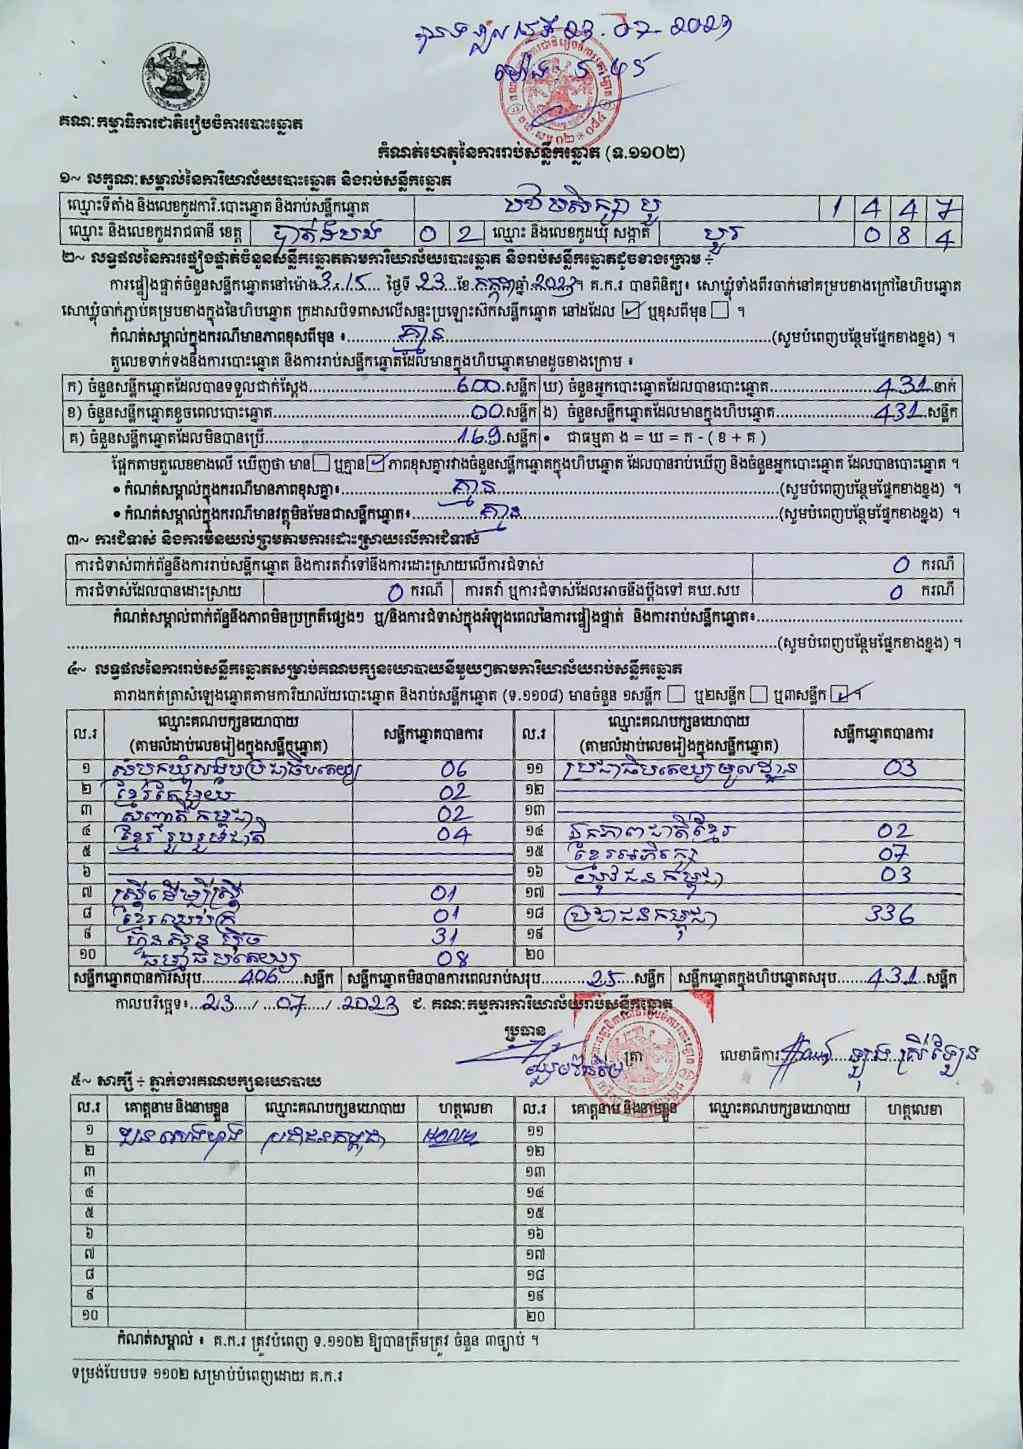 បានទទួល ថ្ងៃទី 23.07.2023
ម៉ោង 5 45
គណៈកម្មាធិការជាតិរៀបចំការបោះឆ្នោត
កំណត់ហេតុនៃការរាប់សន្លឹកឆ្នោត (ទ.១១០២)
១~ លក្ខណៈសម្គាល់នៃការិយាល័យបោះឆ្នោត និងរាប់សន្លឹកឆ្នោត
ឈ្មោះទីតាំង និងលេខកូដការិ.បោះឆ្នោត និងរាប់សន្លឹកឆ្នោត បឋមសិក្សា បួរ 1 4 4 7
ឈ្មោះ និងលេខកូដរាជធានី ខេត្ត បាត់ដំបង 0 2 ឈ្មោះ និងលេខកូដឃុំ សង្កាត់ បួរ 0 8 4
២~ លទ្ធផលនៃការផ្ទៀងផ្ទាត់ចំនួនសន្លឹកឆ្នោតតាមការិយាល័យបោះឆ្នោត និងរាប់សន្លឹកឆ្នោតដូចខាងក្រោម ៖
ការផ្ទៀងផ្ទាត់ចំនួនសន្លឹកឆ្នោតនៅម៉ោង 3:15 ថ្ងៃទី 23 ខែ កក្កដា ឆ្នាំ 2023។ គ.ក.រ បានពិនិត្យ៖ សោឃ្លុំទាំងពីរចាក់នៅគម្របខាងក្រៅនៃហិបឆ្នោត
សោឃ្លុំចាក់ភ្ជាប់គម្របខាងក្នុងនៃហិបឆ្នោត ក្រដាសបិទពាសលើសន្ទះប្រឡោះស៊កសន្លឹកឆ្នោត នៅដដែល ☑ ឬខុសពីមុន ☐ ។
កំណត់សម្គាល់ក្នុងករណីមានភាពខុសពីមុន ៖ គ្មាន (សូមបំពេញបន្ថែមផ្នែកខាងខ្នង) ។
តួលេខទាក់ទងនឹងការបោះឆ្នោត និងការរាប់សន្លឹកឆ្នោតដែលមានក្នុងហិបឆ្នោតមានដូចខាងក្រោម ៖
ក) ចំនួនសន្លឹកឆ្នោតដែលបានទទួលជាក់ស្តែង 600 សន្លឹក ឃ) ចំនួនអ្នកបោះឆ្នោតដែលបានបោះឆ្នោត 431 នាក់
ខ) ចំនួនសន្លឹកឆ្នោតខូចពេលបោះឆ្នោត 00 សន្លឹក ង) ចំនួនសន្លឹកឆ្នោតដែលមានក្នុងហិបឆ្នោត 431 សន្លឹក
គ) ចំនួនសន្លឹកឆ្នោតដែលមិនបានប្រើ 169 សន្លឹក • ជាធម្មតា ង = ឃ = ក - ( ខ + គ )
ផ្អែកតាមតួលេខខាងលើ ឃើញថា មាន ☐ ឬគ្មាន ☑ ភាពខុសគ្នារវាងចំនួនសន្លឹកឆ្នោតក្នុងហិបឆ្នោត ដែលបានរាប់ឃើញ និងចំនួនអ្នកបោះឆ្នោត ដែលបានបោះឆ្នោត ។
• កំណត់សម្គាល់ក្នុងករណីមានភាពខុសគ្នា៖ គ្មាន (សូមបំពេញបន្ថែមផ្នែកខាងខ្នង) ។
• កំណត់សម្គាល់ក្នុងករណីមានវត្ថុមិនមែនជាសន្លឹកឆ្នោត៖ គ្មាន (សូមបំពេញបន្ថែមផ្នែកខាងខ្នង) ។
៣~ ការជំទាស់ និងការមិនយល់ព្រមតាមការដោះស្រាយលើការជំទាស់
ការជំទាស់ពាក់ព័ន្ធនឹងការរាប់សន្លឹកឆ្នោត និងការតវ៉ាទៅនឹងការដោះស្រាយលើការជំទាស់ 0 ករណី
ការជំទាស់ដែលបានដោះស្រាយ 0 ករណី ការតវ៉ា ឬការជំទាស់ដែលអាចនឹងប្តឹងទៅ គឃ.សប 0 ករណី
កំណត់សម្គាល់ពាក់ព័ន្ធនឹងភាពមិនប្រក្រតីផ្សេងៗ ឬ/និងការជំទាស់ក្នុងអំឡុងពេលនៃការផ្ទៀងផ្ទាត់ និងការរាប់សន្លឹកឆ្នោត៖
(សូមបំពេញបន្ថែមផ្នែកខាងខ្នង) ។
៤~ លទ្ធផលនៃការរាប់សន្លឹកឆ្នោតសម្រាប់គណបក្សនយោបាយនីមួយៗតាមការិយាល័យរាប់សន្លឹកឆ្នោត
តារាងកត់ត្រាសំឡេងឆ្នោតតាមការិយាល័យបោះឆ្នោត និងរាប់សន្លឹកឆ្នោត (ទ.១១០៨) មានចំនួន ១សន្លឹក ☐ ឬ២សន្លឹក ☐ ឬ៣សន្លឹក ☑ ។
ល.រ ឈ្មោះគណបក្សនយោបាយ (តាមលំដាប់លេខរៀងក្នុងសន្លឹកឆ្នោត) សន្លឹកឆ្នោតបានការ ល.រ ឈ្មោះគណបក្សនយោបាយ (តាមលំដាប់លេខរៀងក្នុងសន្លឹកឆ្នោត) សន្លឹកឆ្នោតបានការ
១ សំបុកឃ្មុំសង្គមប្រជាធិបតេយ្យ 06 ១១ ប្រជាធិបតេយ្យមូលដ្ឋាន 03
២ ខ្មែរតែមួយ 02 ១២
៣ សញ្ជាតិកម្ពុជា 02 ១៣
៤ ខ្មែរ រួបរួមជាតិ 04 ១៤ ឯកភាពជាតិខ្មែរ 02
៥ ១៥ ខ្មែរអភិរក្ស 07
៦ ១៦ យុវជនកម្ពុជា 03
៧ ស្ត្រីដើម្បីស្ត្រី 01 ១៧
៨ ខ្មែរឈប់ក្រ 01 ១៨ ប្រជាជនកម្ពុជា 336
៩ ហ៊្វុនស៊ិនប៉ិច 31 ១៩
១០ ធម្មាធិបតេយ្យ 08 ២០
សន្លឹកឆ្នោតបានការសរុប 406 សន្លឹក សន្លឹកឆ្នោតមិនបានការពេលរាប់សរុប 25 សន្លឹក សន្លឹកឆ្នោតក្នុងហិបឆ្នោតសរុប 431 សន្លឹក
កាលបរិច្ឆេទ៖ 23 / 07 / 2023 ជ. គណៈកម្មការការិយាល័យរាប់សន្លឹកឆ្នោត
ប្រធាន
ត្រា លេខាធិការ
៥~ សាក្សី ៖ ភ្នាក់ងារគណបក្សនយោបាយ
ល.រ គោត្តនាម និងនាមខ្លួន ឈ្មោះគណបក្សនយោបាយ ហត្ថលេខា ល.រ គោត្តនាម និងនាមខ្លួន ឈ្មោះគណបក្សនយោបាយ ហត្ថលេខា
១ ប្រជាជនកម្ពុជា ១១
២ ១២
៣ ១៣
៤ ១៤
៥ ១៥
៦ ១៦
៧ ១៧
៨ ១៨
៩ ១៩
១០ ២០
កំណត់សម្គាល់ ៖ គ.ក.រ ត្រូវបំពេញ ទ.១១០២ ឱ្យបានត្រឹមត្រូវ ចំនួន ៣ច្បាប់ ។
ទម្រង់បែបបទ ១១០២ សម្រាប់បំពេញដោយ គ.ក.រ